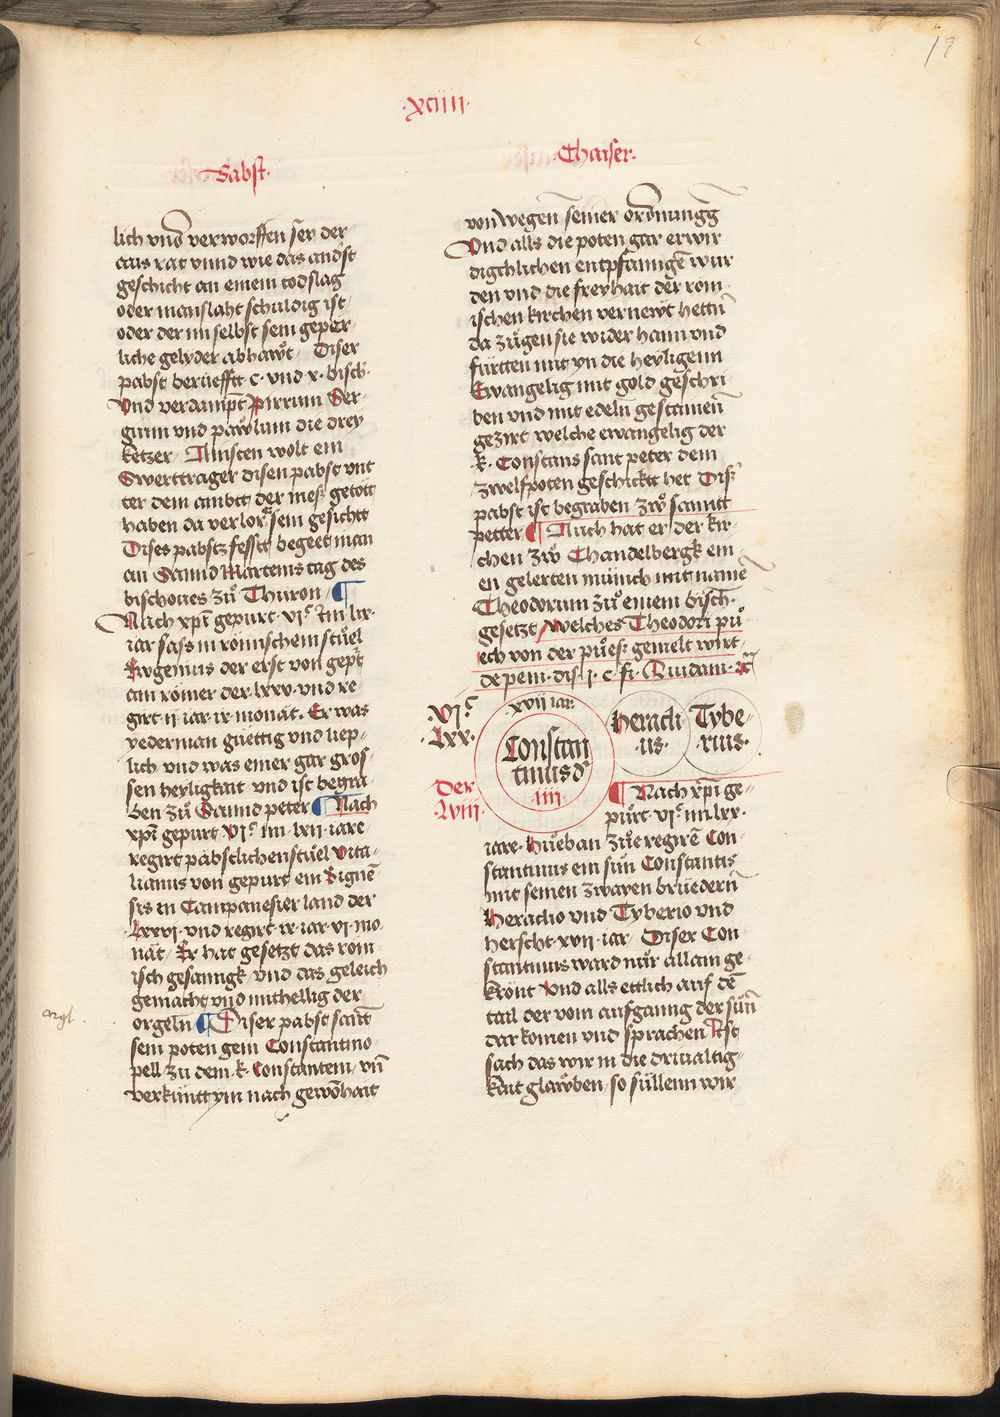 19
·xciiii·
Babst·
lich vnd verworffen ser der
aus rat vnnd wie das andst
geschicht an einem todslag
oder manslaht schuldig ist·
oder der im selbst sein geper
liche gelyder abhawt· Diser
pabst berüefft c· vnd x· bisch·
Vnd verdampt Pirrum Ser-
gium vnd pawlum die drey
ketzer· Ainsten wolt ein
Swerttrager disen pabst vnt
ter dem ambtt der mess getött
haben da verlor er sein gesichtt
Dises pabstz fesstt begeet man
an Sannd Marteins tag des
bischoues zü Thuron·
Nach xpi gepurt· vjᶜ· im lix·
iar sass in römischem stüel
Ewgenius der erst von gepurt
ain römer der lxxv· vnd re-
girt ii iar ix monat· Er was
yederman güettig vnd liep-
lich vnd was einer gar gros-
sen heyligkait vnd ist begra-
ben zü Sannd peter Nach
xpi gepurt vjᶜ im lxii· iare·
regirt päbstlichen stüel Vita-
lianus von gepurt ein Signen
sis in Campanesier land der
lxxvi· vnd regirt ix· iar vi mo-
nät· Er hat gesetzt das röm-
isch gesanngk· vnd das geleich
gemacht vnd mithellig der
orgeln Diser pabst sant
sein poten gein Constantino-
pell zu dem k· Constantem· vnd
verkünttym nach gewonhait
orgl·
Chaiser·
von wegen seiner ordnungg
Vnd alls die poten gar erwir
digchlichen entpfanngen wur
den vnd die freyhait der röm-
ischen kirchen vernewt hettn
da zügen sie wider haim vnd
fürtten mit yn die heyligenn
Ewangelig mit gold geschri-
ben vnd mit edeln gestainen
gezirt welche ewangelig der
·k· Constans sant peter dem
zwelfpoten geschicktt het Diser
pabst ist begraben zwo sanntt
petter Auch hat er der kir-
chen zwo Chandelbergk ein
en gelerten münich mit namen
Theodorum zü einem bisch·
gesetzt welches Theodori pü-
ech von der püess gemelt wirt·
de pem· dis· j· c· fi· Quidam·
·vjᶜ· ·lxx·
Der ·lviii·
·xvii iar·
Constan
tinus d
·iiii·
Heracli
·us·
Tybe-
rius·
Nach xpi ge-
pürt· vjᶜ· im lxx·
iare· hüeban züe regiren Con
stantinus ein sun Constantis
mit seinen zwaien brüedern
Heraclio vnd Tyberio vnd
herscht xvii· iar· Diser Con
stantinus ward nür allain ge-
krönt Vnd alls ettlich auf den
tail der vom aufganng der sunn
dar komen vnd sprachen Ist
sach das wir in die driualtig-
kait glawben· so süllenn wir